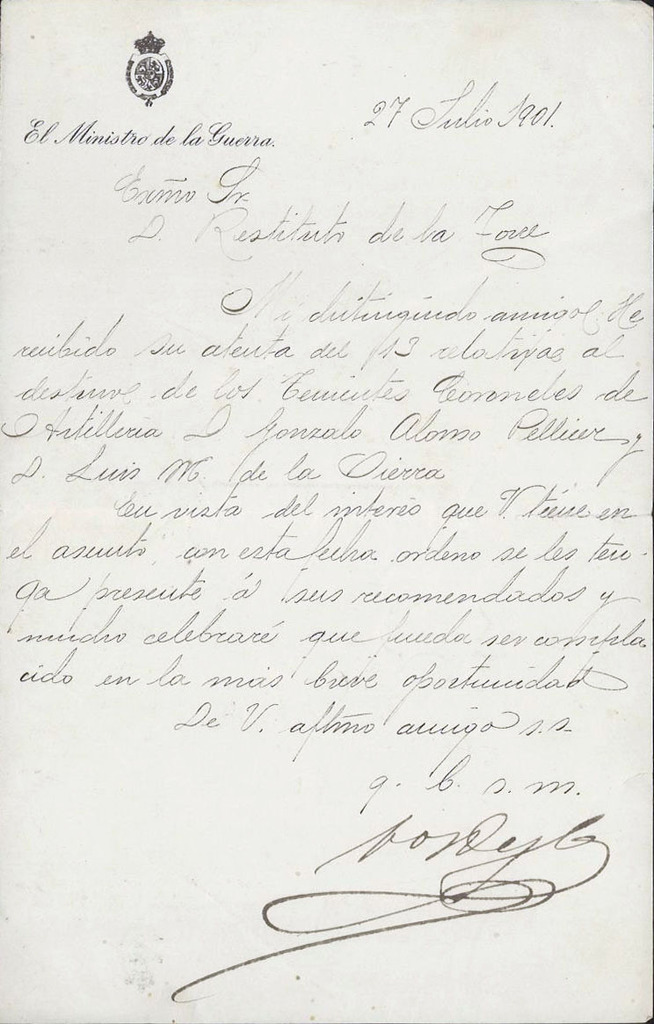 El Ministro de la Guerra.
27 Julio 1901.
Exmo Sr
D. Restituto de la Torre
Mi distinguido amigo: He
recibido su atenta del 13 relativa al
destino de los Tenientes Coroneles de
Artilleria D Gonzalo Alonso Pellicer y
D. Luis M. de la Sierra
En vista del interés que V. tiene en
el asunto, con esta fecha ordeno se les ten-
ga presente á sus recomendados y
mucho celebraré que pueda ser compla
cido en la más breve oportunidad
De V. affmo amigo s.s.
q. b. s. m.